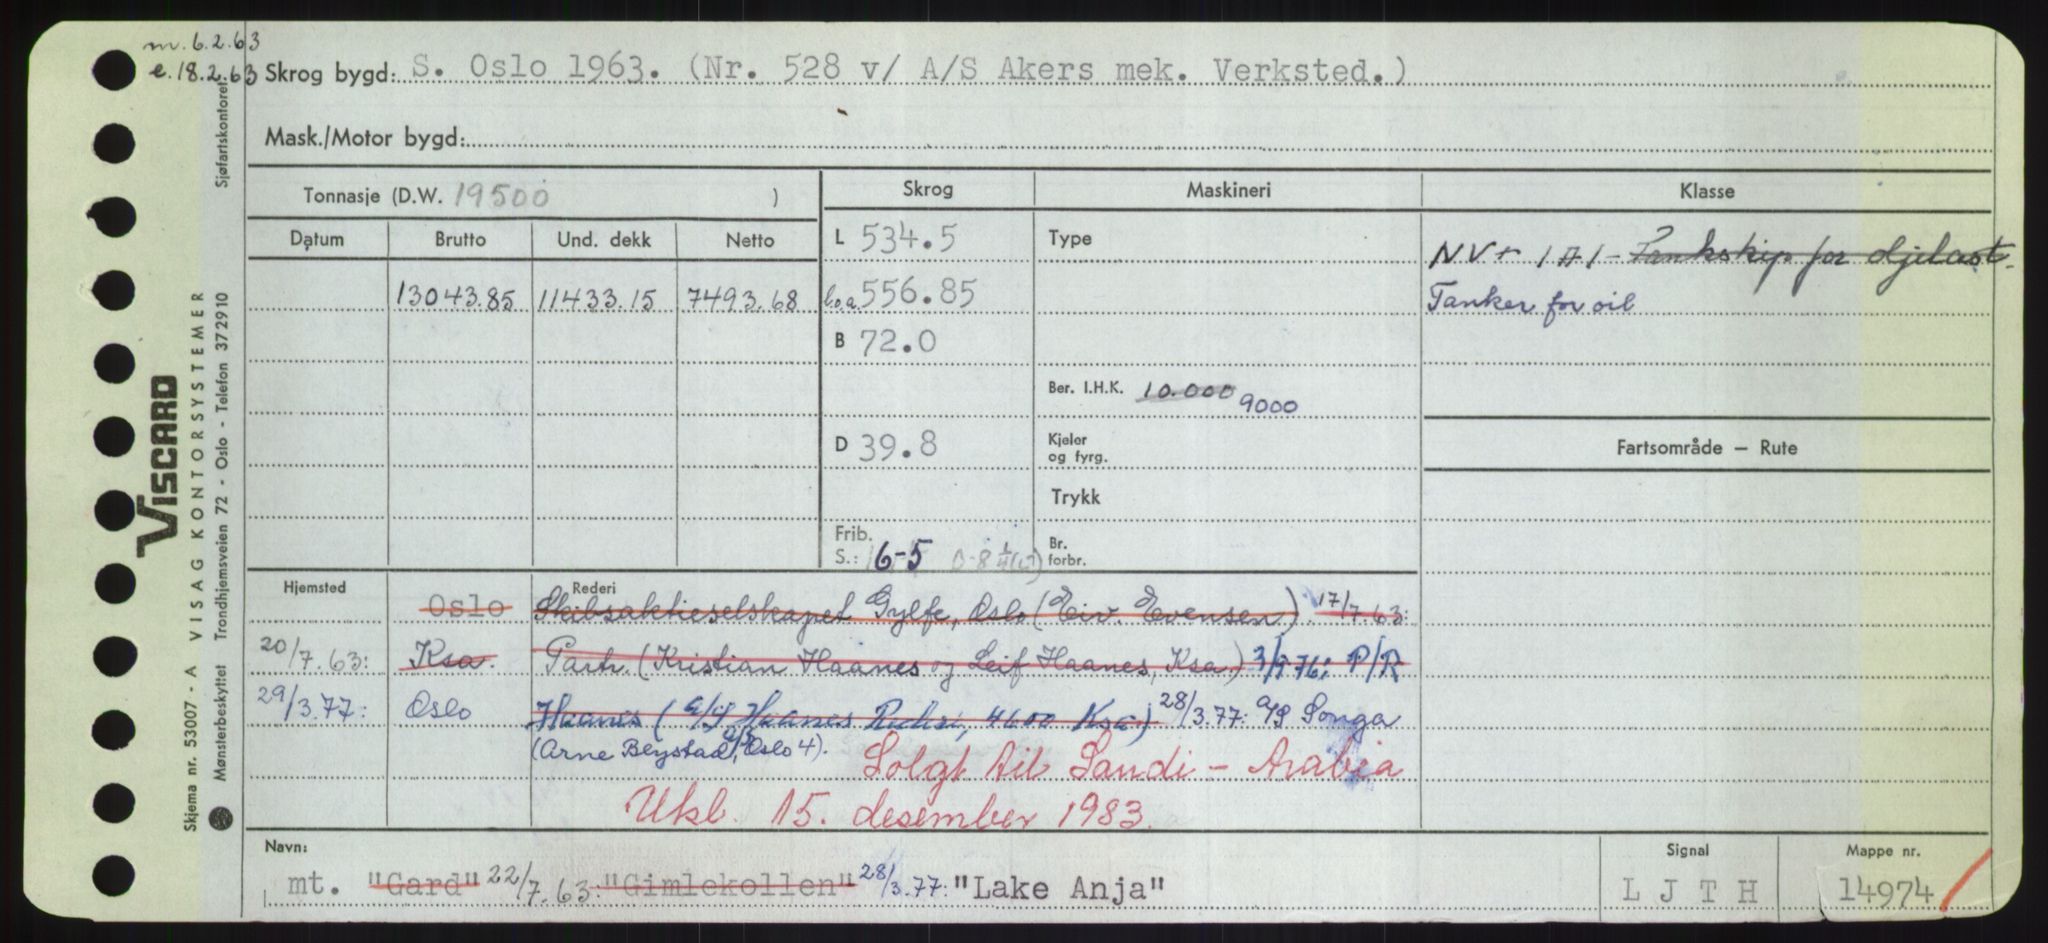 m. 6.2.63
e. 18.2.63 Skrog bygd: S. Oslo 1963. (Nr. 528 v/ A/S Akers mek. Verksted.)
Mask./Motor bygd:
Tonnasje (D.W. 19500 )
Skrog
Maskineri
Klasse
Datum Brutto Und. dekk Netto
L 534.5
Type
NV+ 1A1 - Tankskip for oljelast.
13043.85 11433.15 7493.68
l.o.a. 556.85
Tanker for oil
B 72.0
Ber. I.H.K. 10.000 9000
D 39.8
Kjeler
og fyrg.
Fartsområde — Rute
Trykk
Frib.
S.: 6-5
Br.
forbr.
Hjemsted Rederi
Oslo Skibsaktieselskapet Gylfe, Oslo (Eiv. Evensen). 17/7.63:
20/7.63: Ksa. Partr. (Kristian Haanes og Leif Haanes, Ksa.) 3/9 76: P/R
29/3.77: Oslo Haanes (A/S Haanes Rederi, 4600 Ksa) 28/3.77: A/S Songa
(Arne Blystad A/S, Oslo 4). Solgt til Saudi - Arabia
Ukl. 15. desember 1983.
Navn:
mt. "Gard" 22/7.63: "Gimlekollen" 28/3.77: "Lake Anja"
Signal
L J T H
Mappe nr.
14974
VISCARD
Skjema nr. 53007 - A VISAG KONTORSYSTEMER
Mønsterbeskyttet Trondhjemsveien 72 - Oslo - Telefon 372910 Sjøfartskontoret